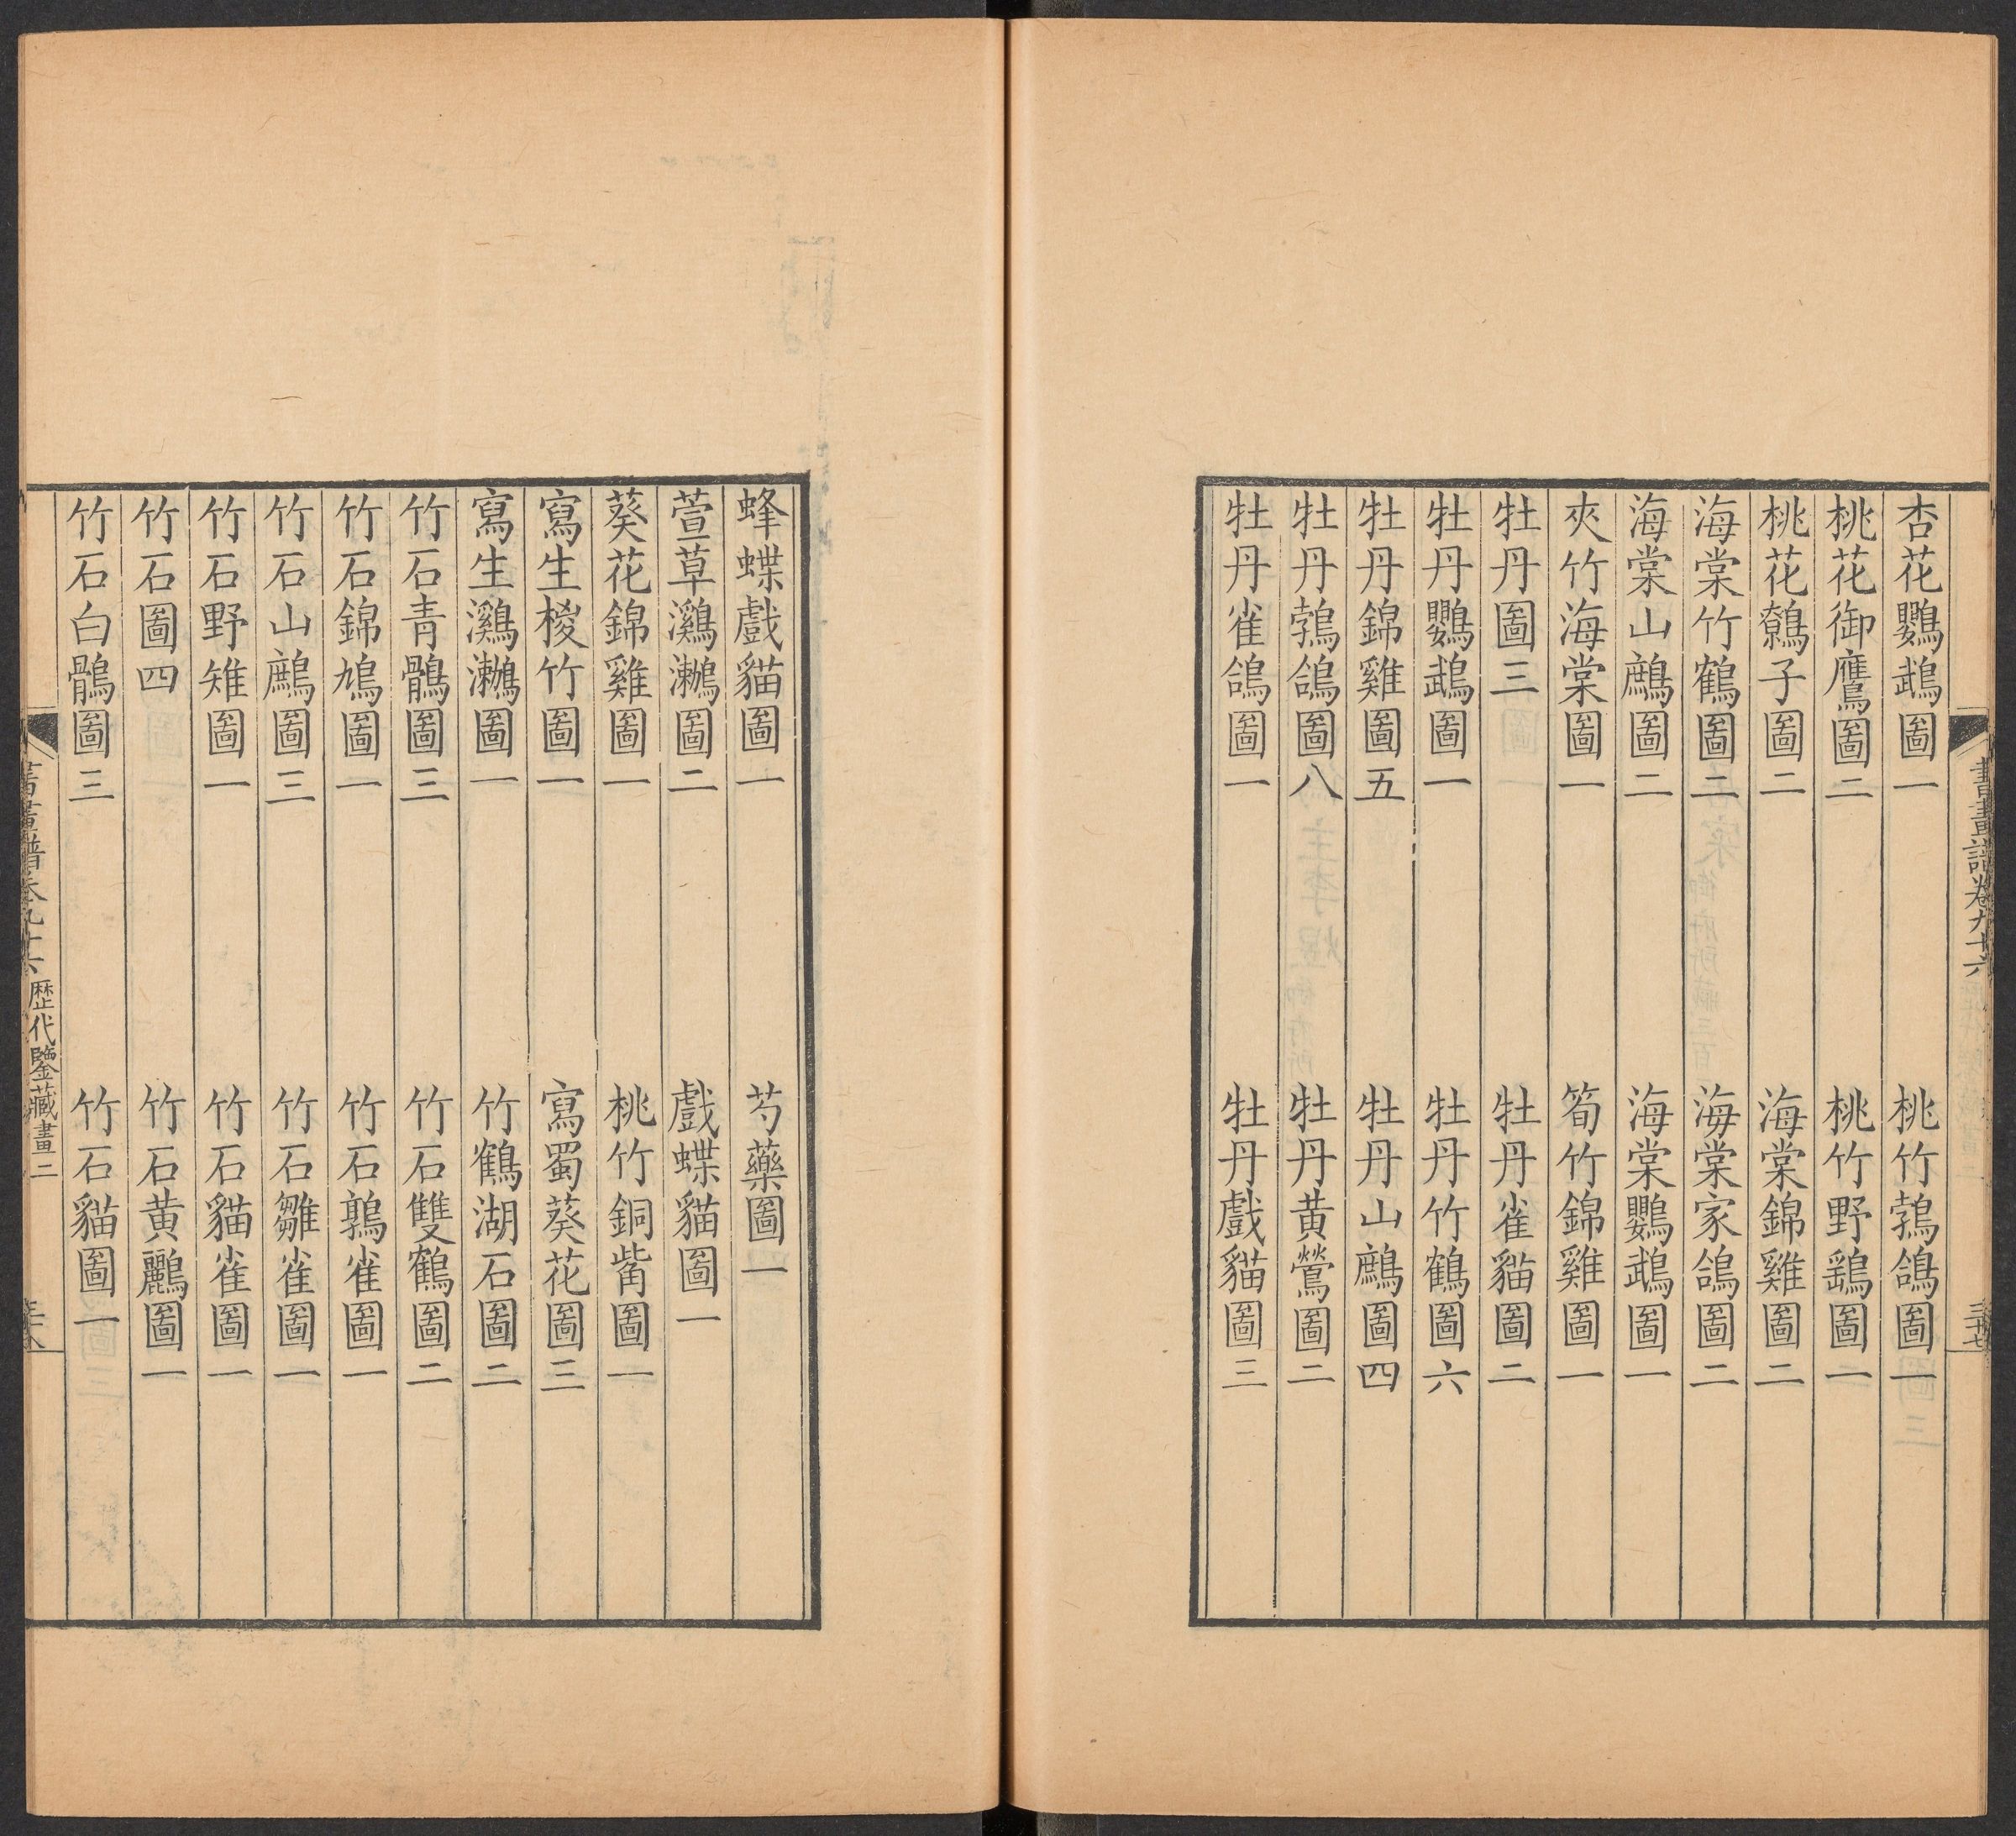 書畫譜卷九十六
三十七
杏花鸚鵡圖一　桃竹鵓鴿圖一
桃花御鷹圖二　桃竹野鷂圖一
桃花鷯子圖二　海棠錦雞圖二
海棠竹鶴圖二　海棠家鴿圖二
海棠山鷓圖二　海棠鸚鵡圖一
夾竹海棠圖一　筍竹錦雞圖一
牡丹圖三　牡丹雀貓圖二
牡丹鸚鵡圖一　牡丹竹鶴圖六
牡丹錦雞圖五　牡丹山鷓圖四
牡丹鵓鴿圖八　牡丹黃鶯圖二
牡丹雀鴿圖一　牡丹戲貓圖三
蜂蝶戲貓圖一　芍藥圖一
萱草鸂鷘圖二　戲蝶貓圖一
葵花錦雞圖一　桃竹銅觜圖一
寫生椶竹圖一　寫蜀葵花圖三
寫生鸂鷘圖一　竹鶴湖石圖二
竹石青鶻圖三　竹石雙鶴圖二
竹石錦鳩圖一　竹石鶉雀圖一
竹石山鷓圖三　竹石雛雀圖一
竹石野雉圖一　竹石貓雀圖一
竹石圖四　竹石黃鸝圖一
竹石白鶻圖三　竹石貓圖一
書畫譜卷九十六　歷代鑒藏畫二
三十八